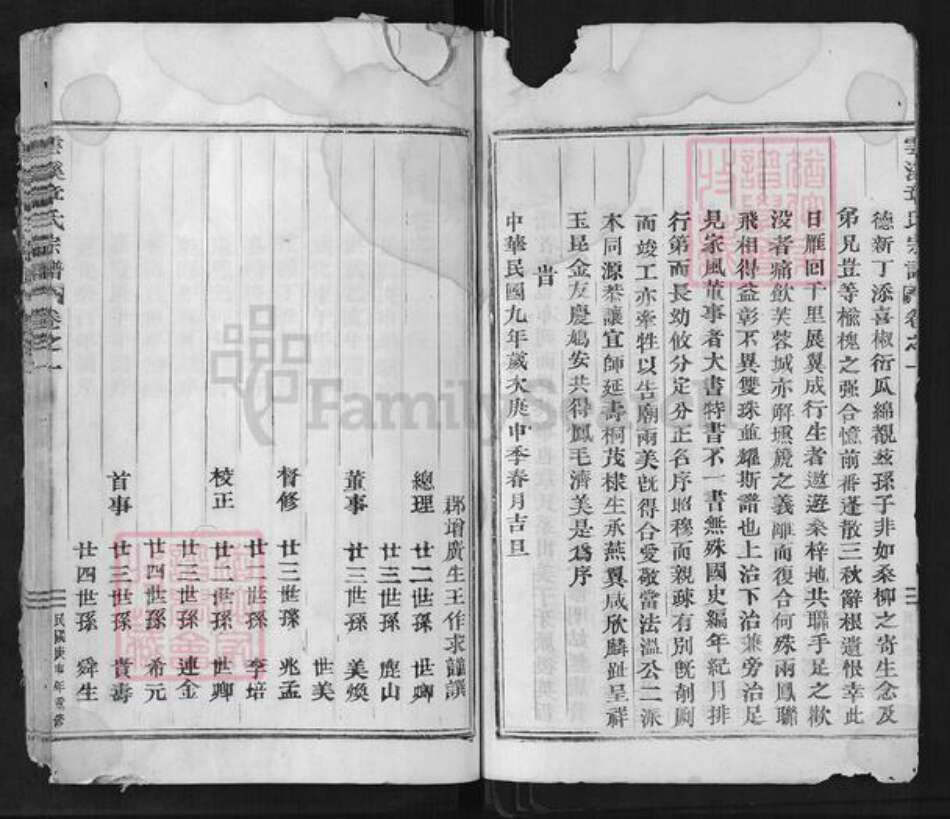 德新丁添喜椒衍瓜綿覩茲孫子非如桑柳之寄生念及
弟兄豈等榆槐之强合憶前番蓬散三秋辭根遺恨幸此
日雁回千里展翼成行生者遨遊桑梓地共聯手足之歡
没者痛飲芙蓉城亦解壎篪之義離而復合何殊兩鳳聯
飛相得益彰不異雙珠並耀斯譜也上治下治兼旁治足
見家風董事者大書特書不一書無殊國史編年紀月排
行第而長幼攸分定分正名序昭穆而親疎有別旣剞劂
而竣工亦牽牲以告廟兩美旣得合愛敬當法溫公二派
本同源恭讓宜師延壽桐茂椂生承燕翼咸欣麟趾呈祥
玉昆金友慶鳩安共得鳳毛濟美是爲序
旹
中華民國九年歲次庚申季春月吉旦
雲溪章氏宗譜 卷之一
郡增廣生王作求謹譔
總理 廿二世孫 世卿
廿三世孫 鹿山
董事 廿三世孫 美煥
世美
督修 廿三世孫 兆孟
廿二世孫 李培
校正 廿二世孫 世卿
廿三世孫 連金
廿四世孫 希元
首事 廿三世孫 貴壽
廿四世孫 舜生
雲溪章氏宗譜 卷之一
民國庚申年重修
FamilySearch